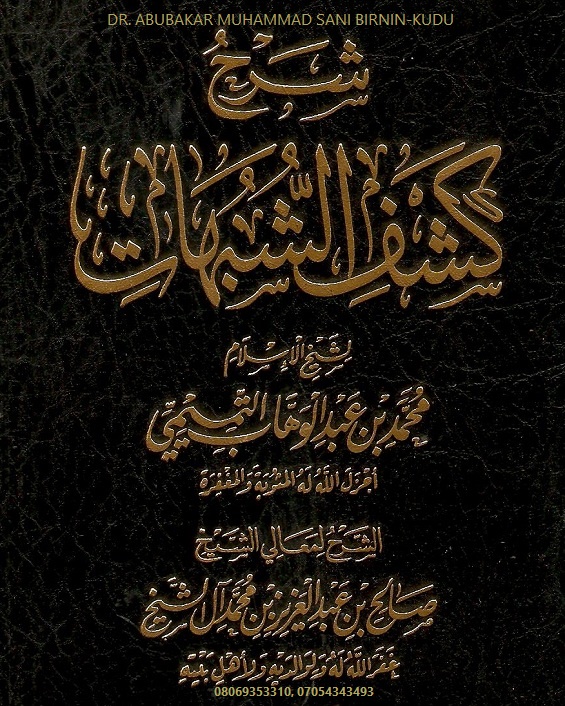 DR. ABUBAKAR MUHAMMAD SANI BIRNIN-KUDU
شَرْحُ
كَشْفِ الشُّبُهَاتِ
لِشَيْخِ الْإِسْلَامِ
مُحَمَّدِ بْنِ عَبْدِ الْوَهَّابِ التَّمِيمِيِّ
أَجْزَلَ اللَّهُ لَهُ الْمَثُوبَةَ وَالْمَغْفِرَةَ
الشَّرْحُ لِمَعَالِي الشَّيْخِ
صَالِحِ بْنِ عَبْدِ الْعَزِيزِ بْنِ مُحَمَّدٍ آلِ الشَّيْخِ
غَفَرَ اللَّهُ لَهُ وَلِوَالِدَيْهِ وَلِأَهْلِ بَيْتِهِ
08069353310, 07054343493